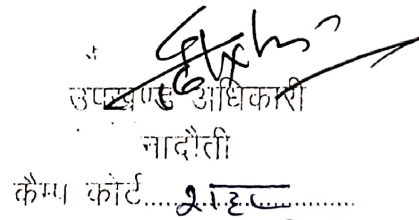 उपखण्ड अधिकारी
नादौती
कैम्प कोर्ट....................